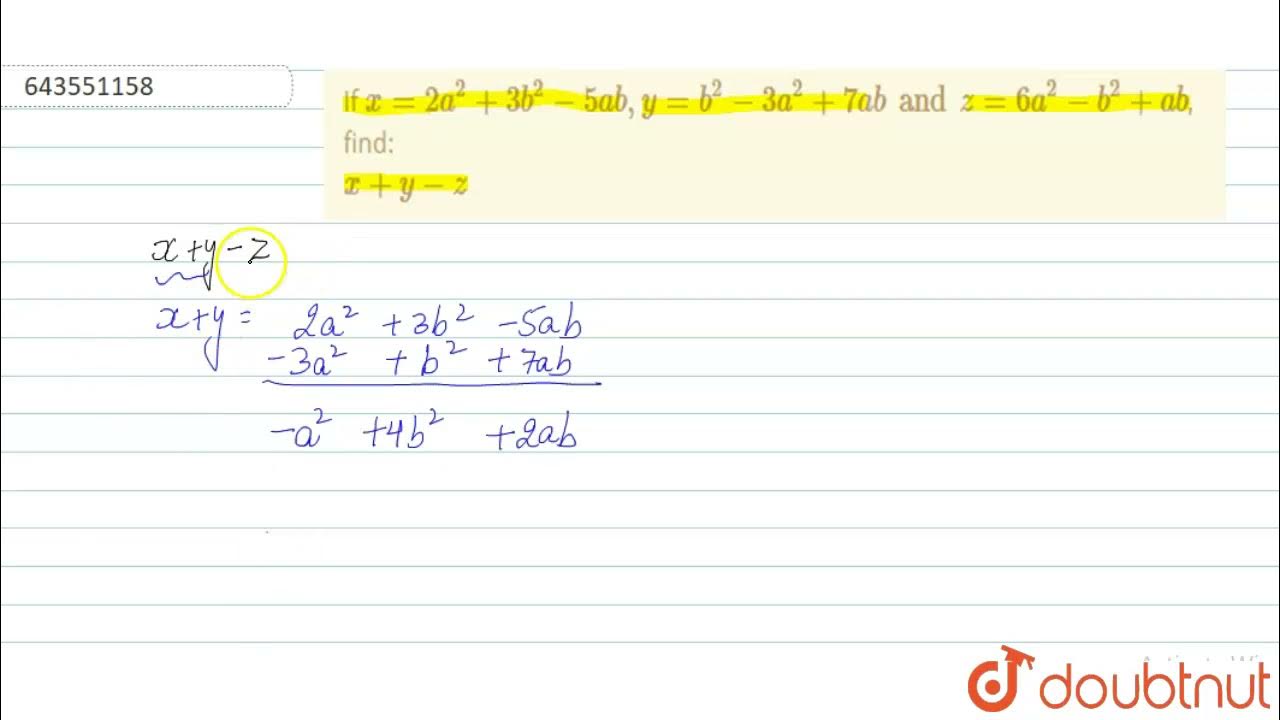 643551158
If x = 2a² + 3b² − 5ab, y = b² − 3a² + 7ab and z = 6a² − b² + ab,
find:
x + y − z
x + y − z
x + y = 2a² + 3b² − 5ab
−3a² + b² + 7ab
−a² + 4b² + 2ab
doubtnut